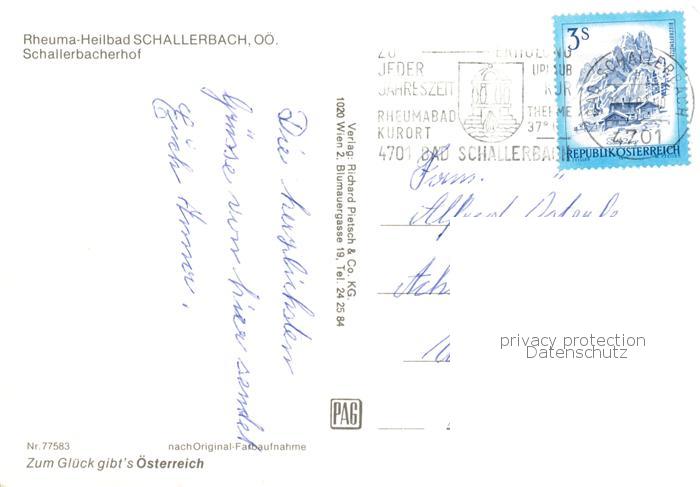 Rheuma-Heilbad SCHALLERBACH, OÖ.
Schallerbacherhof
ZU ERHOLUNG
JEDER URLAUB
JAHRESZEIT KUR
RHEUMABAD THERME
KURORT 37°
4701 BAD SCHALLERBACH
3 S
REPUBLIK ÖSTERREICH
BAD SCHALLERBACH
4701
Die herzlichsten
Grüsse von hier sendet
Verlag: Richard Pietsch & Co. KG.
1020 Wien 2, Blumauergasse 19, Tel. 24 25 84
Fam.
privacy protection
Datenschutz
PAG
Nr. 77583 nach Original-Farbaufnahme
Zum Glück gibt's Österreich